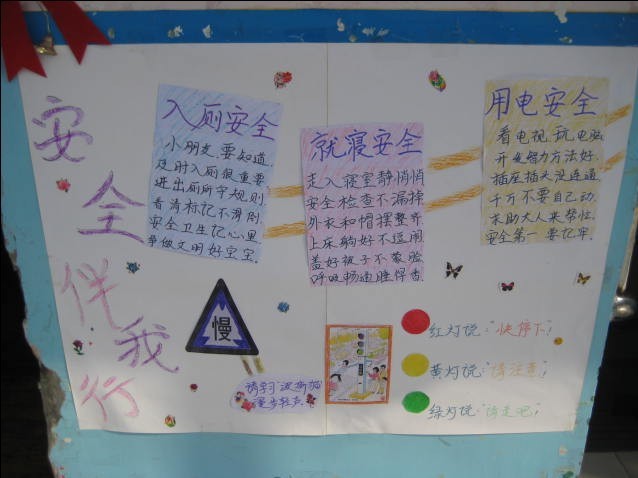 安全伴我行
入厕安全
小朋友,要知道,
及时入厕很重要
进出厕所守规则
看清标记不滑倒.
安全卫生记心里.
争做文明好宝宝.
就寝安全
走入寝室静悄悄
安全检查不漏掉
外衣和帽摆整齐
上床躺好不逗闹
盖好被子不蒙脸
呼吸畅通睡得香.
用电安全
看电视,玩电脑
开发智力方法好.
插座插头没连通
千万不要自己动.
求助大人来帮忙.
安全第一要记牢.
慢
请学习
漫步轻声
红灯说:"快停下"!
黄灯说:"请注意"!
绿灯说:"请走吧"!